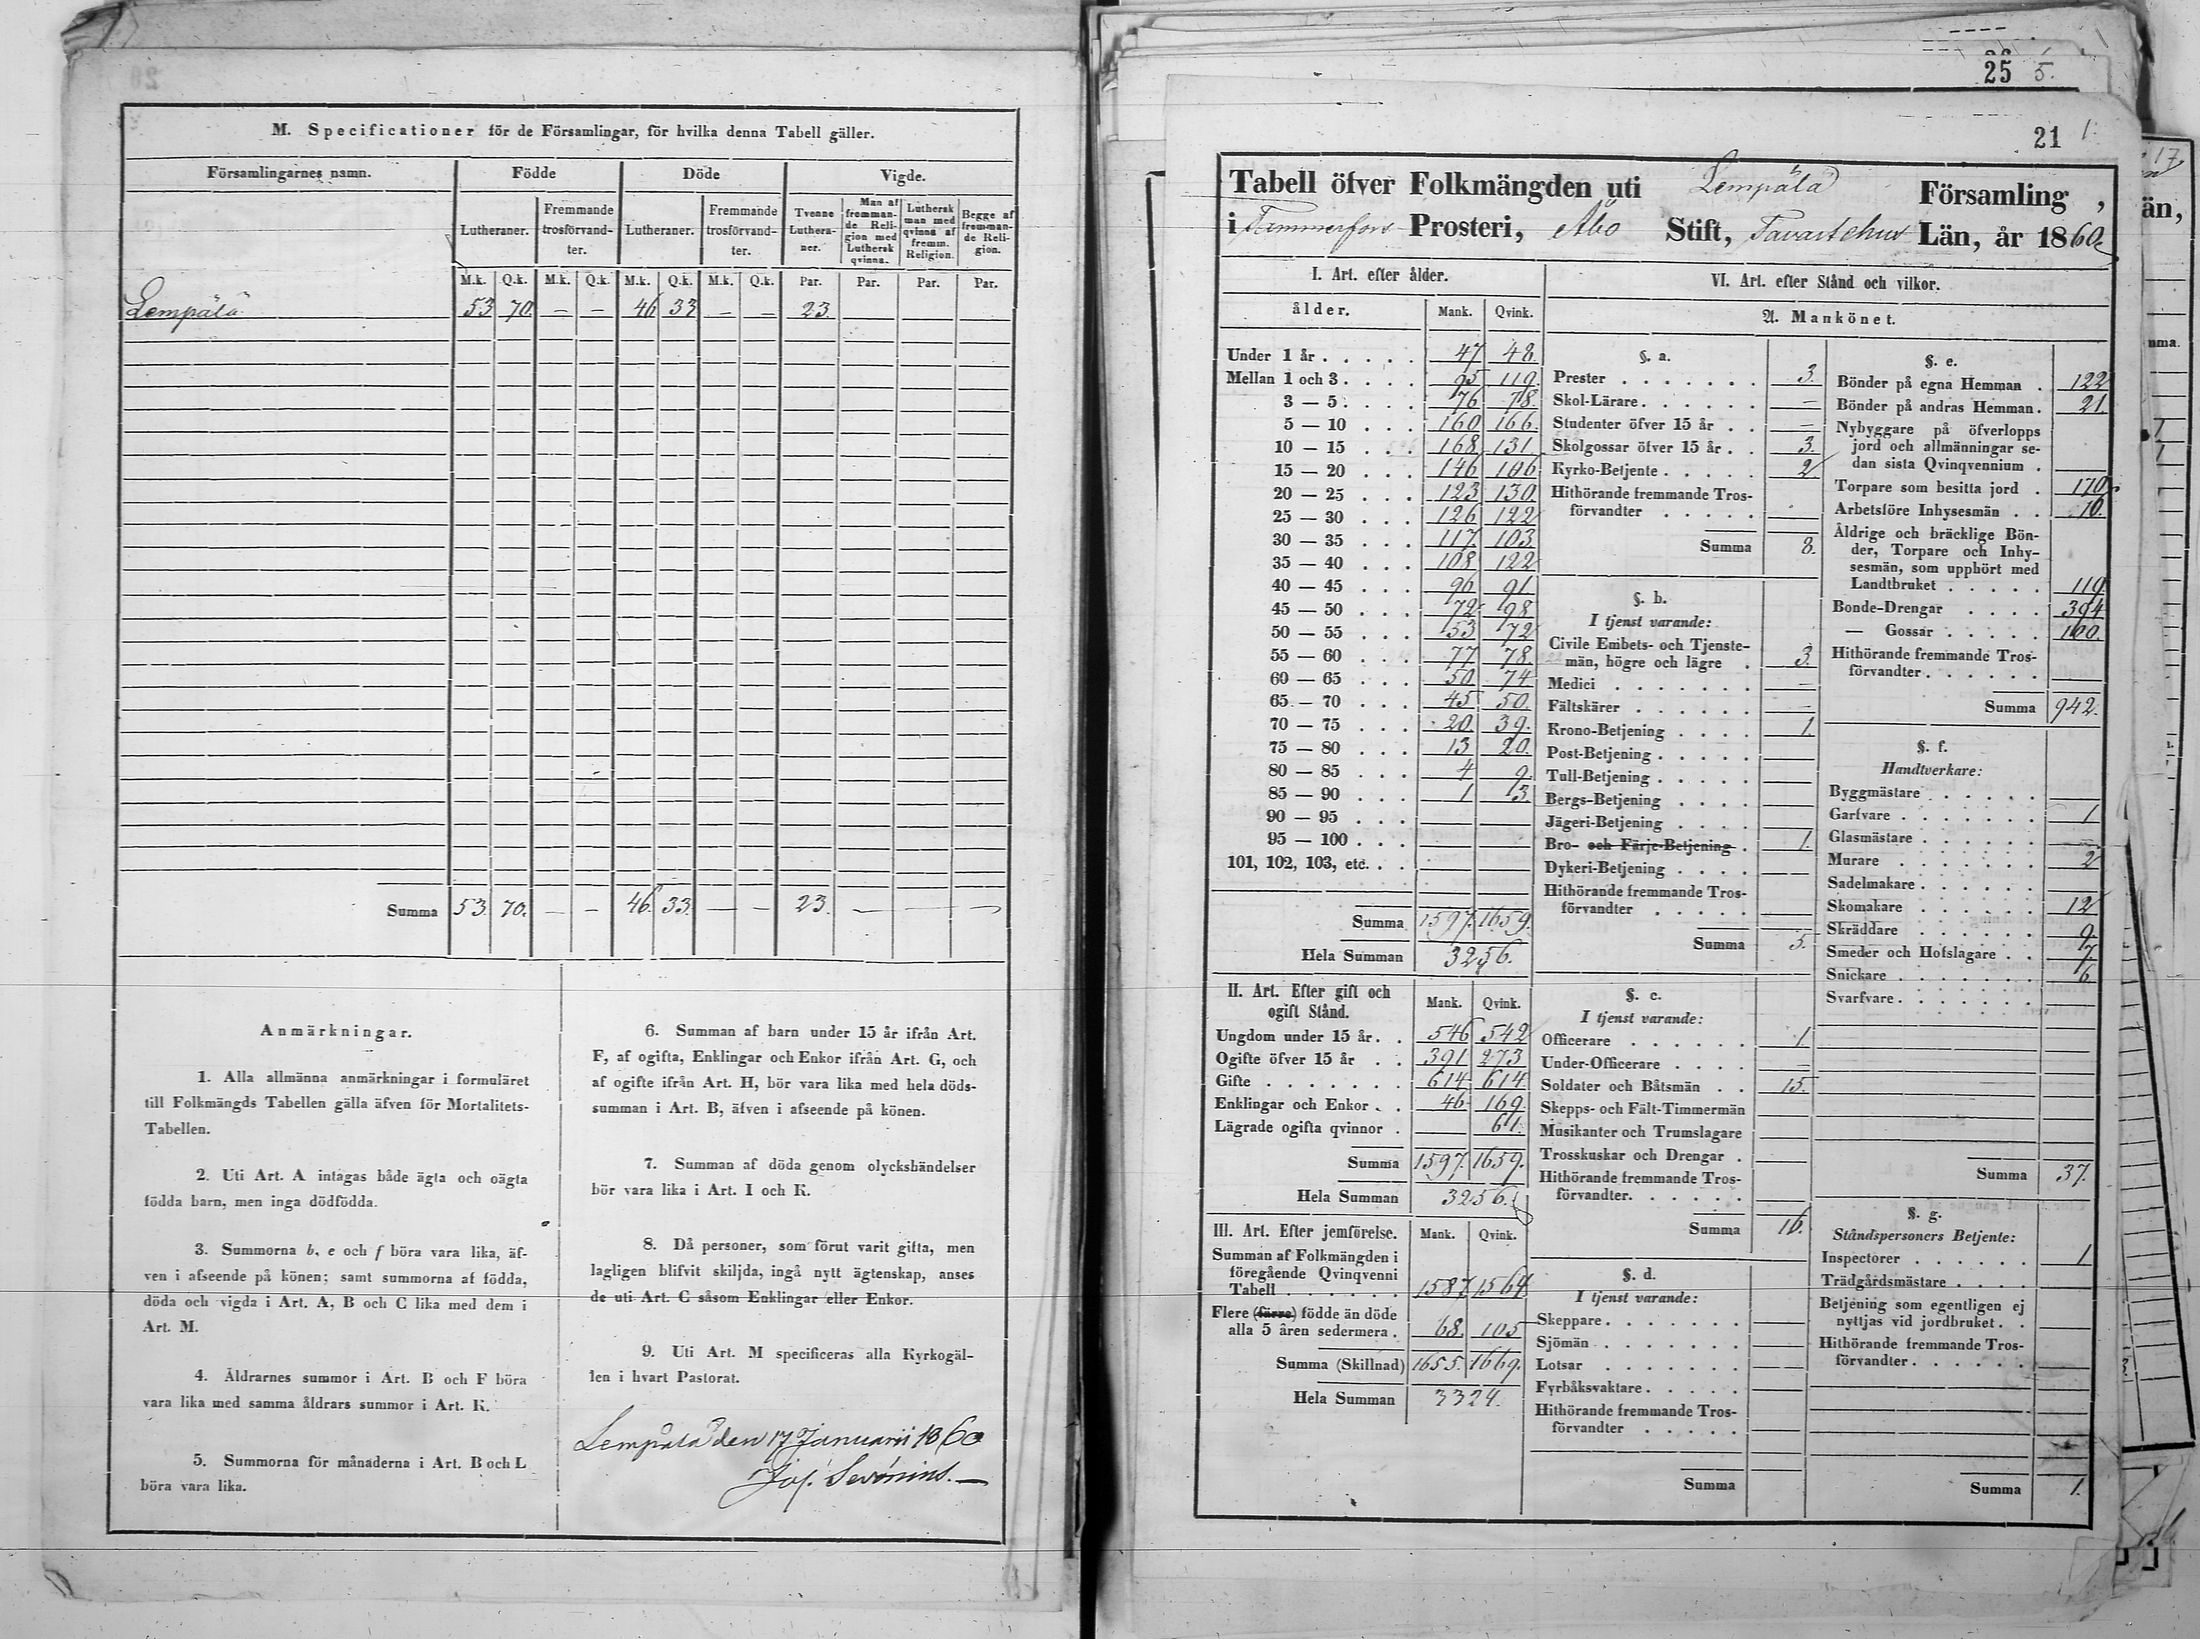 M. Specificationer för de Församlingar, för hvilka denna Tabell gäller.
Församlingarnes namn. Födde Döde Vigde.
Lutheraner. Fremmande trosförvandter. Lutheraner. Fremmande trosförvandter. Tvenne Lutheraner. Man af fremmande Religion med Luthersk qvinna. Luthersk man med qvinna af fremm. Religion. Begge af fremmande Religion.
M.k. Q.k. M.k. Q.k. M.k. Q.k. M.k. Q.k. Par. Par. Par. Par.
Lempälä 53 70. — — 46 33 — — 23.
Summa 53. 70. — — 46. 33. — — 23. — — —
Anmärkningar.
1. Alla allmänna anmärkningar i formuläret
till Folkmängds Tabellen gälla äfven för Mortalitets-
Tabellen.
2. Uti Art. A intagas både ägta och oägta
födda barn, men inga dödfödda.
3. Summorna b, e och f böra vara lika, äf-
ven i afseende på könen; samt summorna af födda,
döda och vigda i Art. A, B och C lika med dem i
Art. M.
4. Åldrarnes summor i Art. B och F böra
vara lika med samma åldrars summor i Art. K.
5. Summorna för månaderna i Art. B och L
böra vara lika.
6. Summan af barn under 15 år ifrån Art.
F, af ogifta, Enklingar och Enkor ifrån Art. G, och
af ogifte ifrån Art. H, bör vara lika med hela döds-
summan i Art. B, äfven i afseende på könen.
7. Summan af döda genom olyckshändelser
bör vara lika i Art. I och K.
8. Då personer, som förut varit gifta, men
lagligen blifvit skiljda, ingå nytt ägtenskap, anses
de uti Art. C såsom Enklingar eller Enkor.
9. Uti Art. M specificeras alla Kyrkogäl-
len i hvart Pastorat.
Lempälä den 17 Januarii 1860
Jos. Sevonius.
25 5.
21 1
Tabell öfver Folkmängden uti Lempälä Församling,
i Tammerfors Prosteri, Åbo Stift, Tavastehus Län, år 1860.
I. Art. efter ålder.
ålder. Mank. Qvink.
Under 1 år 47 48.
Mellan 1 och 3 95 119.
3 — 5 76 78.
5 — 10 160 166.
10 — 15 168 131.
15 — 20 146 106
20 — 25 123 130
25 — 30 126 122
30 — 35 117. 103
35 — 40 108 122
40 — 45 96 91
45 — 50 72 98
50 — 55 53 72
55 — 60 77 78.
60 — 65 50 74
65 — 70 45 50.
70 — 75 20. 39.
75 — 80 13 20.
80 — 85 4 9.
85 — 90 1 3.
90 — 95
95 — 100
101, 102, 103, etc.
Summa 1597. 1659.
Hela Summan 3256.
II. Art. Efter gift och ogift Stånd. Mank. Qvink.
Ungdom under 15 år 546 542
Ogifte öfver 15 år 391 273
Gifte 614 614
Enklingar och Enkor 46 169
Lägrade ogifta qvinnor — 61.
Summa 1597. 1659.
Hela Summan 3256.
III. Art. Efter jemförelse. Mank. Qvink.
Summan af Folkmängden i
föregående Qvinqvenni
Tabell 1587. 1564
Flere (färre) födde än döde
alla 5 åren sedermera 68. 105
Summa (Skillnad) 1655. 1669.
Hela Summan 3324.
VI. Art. efter Stånd och vilkor.
A. Mankönet.
§. a.
Prester 3.
Skol-Lärare —
Studenter öfver 15 år —
Skolgossar öfver 15 år 3.
Kyrko-Betjente 2
Hithörande fremmande Tros-
förvandter
Summa 8.
§. b.
I tjenst varande:
Civile Embets- och Tjenste-
män, högre och lägre 3.
Medici —
Fältskärer —
Krono-Betjening 1.
Post-Betjening
Tull-Betjening
Bergs-Betjening
Jägeri-Betjening
Bro- och Färje-Betjening 1.
Dykeri-Betjening
Hithörande fremmande Tros-
förvandter
Summa 5.
§. c.
I tjenst varande:
Officerare 1
Under-Officerare —
Soldater och Båtsmän 15.
Skepps- och Fält-Timmermän
Musikanter och Trumslagare
Trosskuskar och Drengar
Hithörande fremmande Tros-
förvandter.
Summa 16.
§. d.
I tjenst varande:
Skeppare
Sjömän
Lotsar
Fyrbåksvaktare
Hithörande fremmande Tros-
förvandter
Summa
§. e.
Bönder på egna Hemman 122
Bönder på andras Hemman 21.
Nybyggare på öfverlopps
jord och allmänningar se-
dan sista Qvinqvennium
Torpare som besitta jord 170
Arbetsföre Inhysesmän 10.
Åldrige och bräcklige Bön-
der, Torpare och Inhy-
sesmän, som upphört med
Landtbruket 119
Bonde-Drengar 394
— Gossar 100.
Hithörande fremmande Tros-
förvandter
Summa 942.
§. f.
Handtverkare:
Byggmästare
Garfvare 1
Glasmästare —
Murare 2
Sadelmakare
Skomakare 12
Skräddare 9.
Smeder och Hofslagare 7.
Snickare 6
Svarfvare
Summa 37.
§. g.
Ståndspersoners Betjente:
Inspectorer 1
Trädgårdsmästare
Betjening som egentligen ej
nyttjas vid jordbruket
Hithörande fremmande Tros-
förvandter
Summa 1.
17
än,
mma.